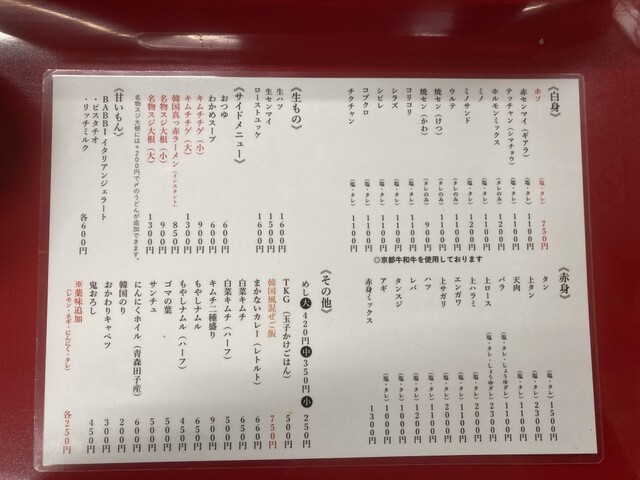 《白身》
ホソ (塩・タレ) 750円
赤センマイ(ギアラ) (塩・タレ) 1100円
テッチャン(シマチョウ) (塩・タレ) 1100円
ホルモンミックス (タレのみ) 1200円
ミノ (塩・タレ) 1100円
ミノサンド (塩・タレ) 1200円
ウルテ (タレのみ) 1100円
焼セン(けつ) (タレのみ) 1100円
焼セン(かわ) (タレのみ) 900円
コリコリ (塩・タレ) 1100円
シラズ (塩・タレ) 1100円
シビレ (塩・タレ) 1100円
コブクロ (塩・タレ) 1100円
チクチャン (塩・タレ) 1100円
◎京都牛和牛を使用しております
《生もの》
生ハツ 1600円
生センマイ 1500円
ローストユッケ 1600円
《サイドメニュー》
おつゆ 600円
わかめスープ 600円
キムチチゲ(小) 900円
キムチチゲ(大) 1300円
韓国真っ赤ラーメン(インスタント) 850円
名物スジ大根(小) 900円
名物スジ大根(大) 1300円
名物スジ大根には+200円で〆のうどんが追加できます。
《甘いもん》
BABBI イタリアンジェラート
・ピスタチオ
・リッチミルク 各600円
《赤身》
タン (塩・タレ) 1500円
上タン (塩・タレ) 2300円
天肉 (塩・タレ) 1100円
バラ (塩・タレ・しょうゆダレ) 1100円
上ロース (塩・タレ・しょうゆダレ) 2300円
上ハラミ (塩・タレ) 2000円
エンガワ (塩・タレ) 1100円
上サガリ (塩・タレ) 2000円
ハツ (塩・タレ) 1100円
レバ (塩・タレ) 1200円
タンスジ (塩・タレ) 1000円
アギ (塩・タレ) 1000円
赤身ミックス 1300円
《その他》
めし 大 420円 中 350円 小 250円
TKG(玉子かけごはん) 500円
韓国風混ぜご飯 750円
まかないカレー(レトルト) 660円
白菜キムチ 650円
白菜キムチ(ハーフ) 500円
キムチ二種盛り 900円
もやしナムル 650円
もやしナムル(ハーフ) 450円
ゴマの葉 500円
サンチュ 500円
にんにくホイル(青森田子産) 600円
韓国のり 200円
おかわりキャベツ 300円
鬼おろし 450円
※薬味追加 各250円
(レモン・ネギ・にんにく・タレ)